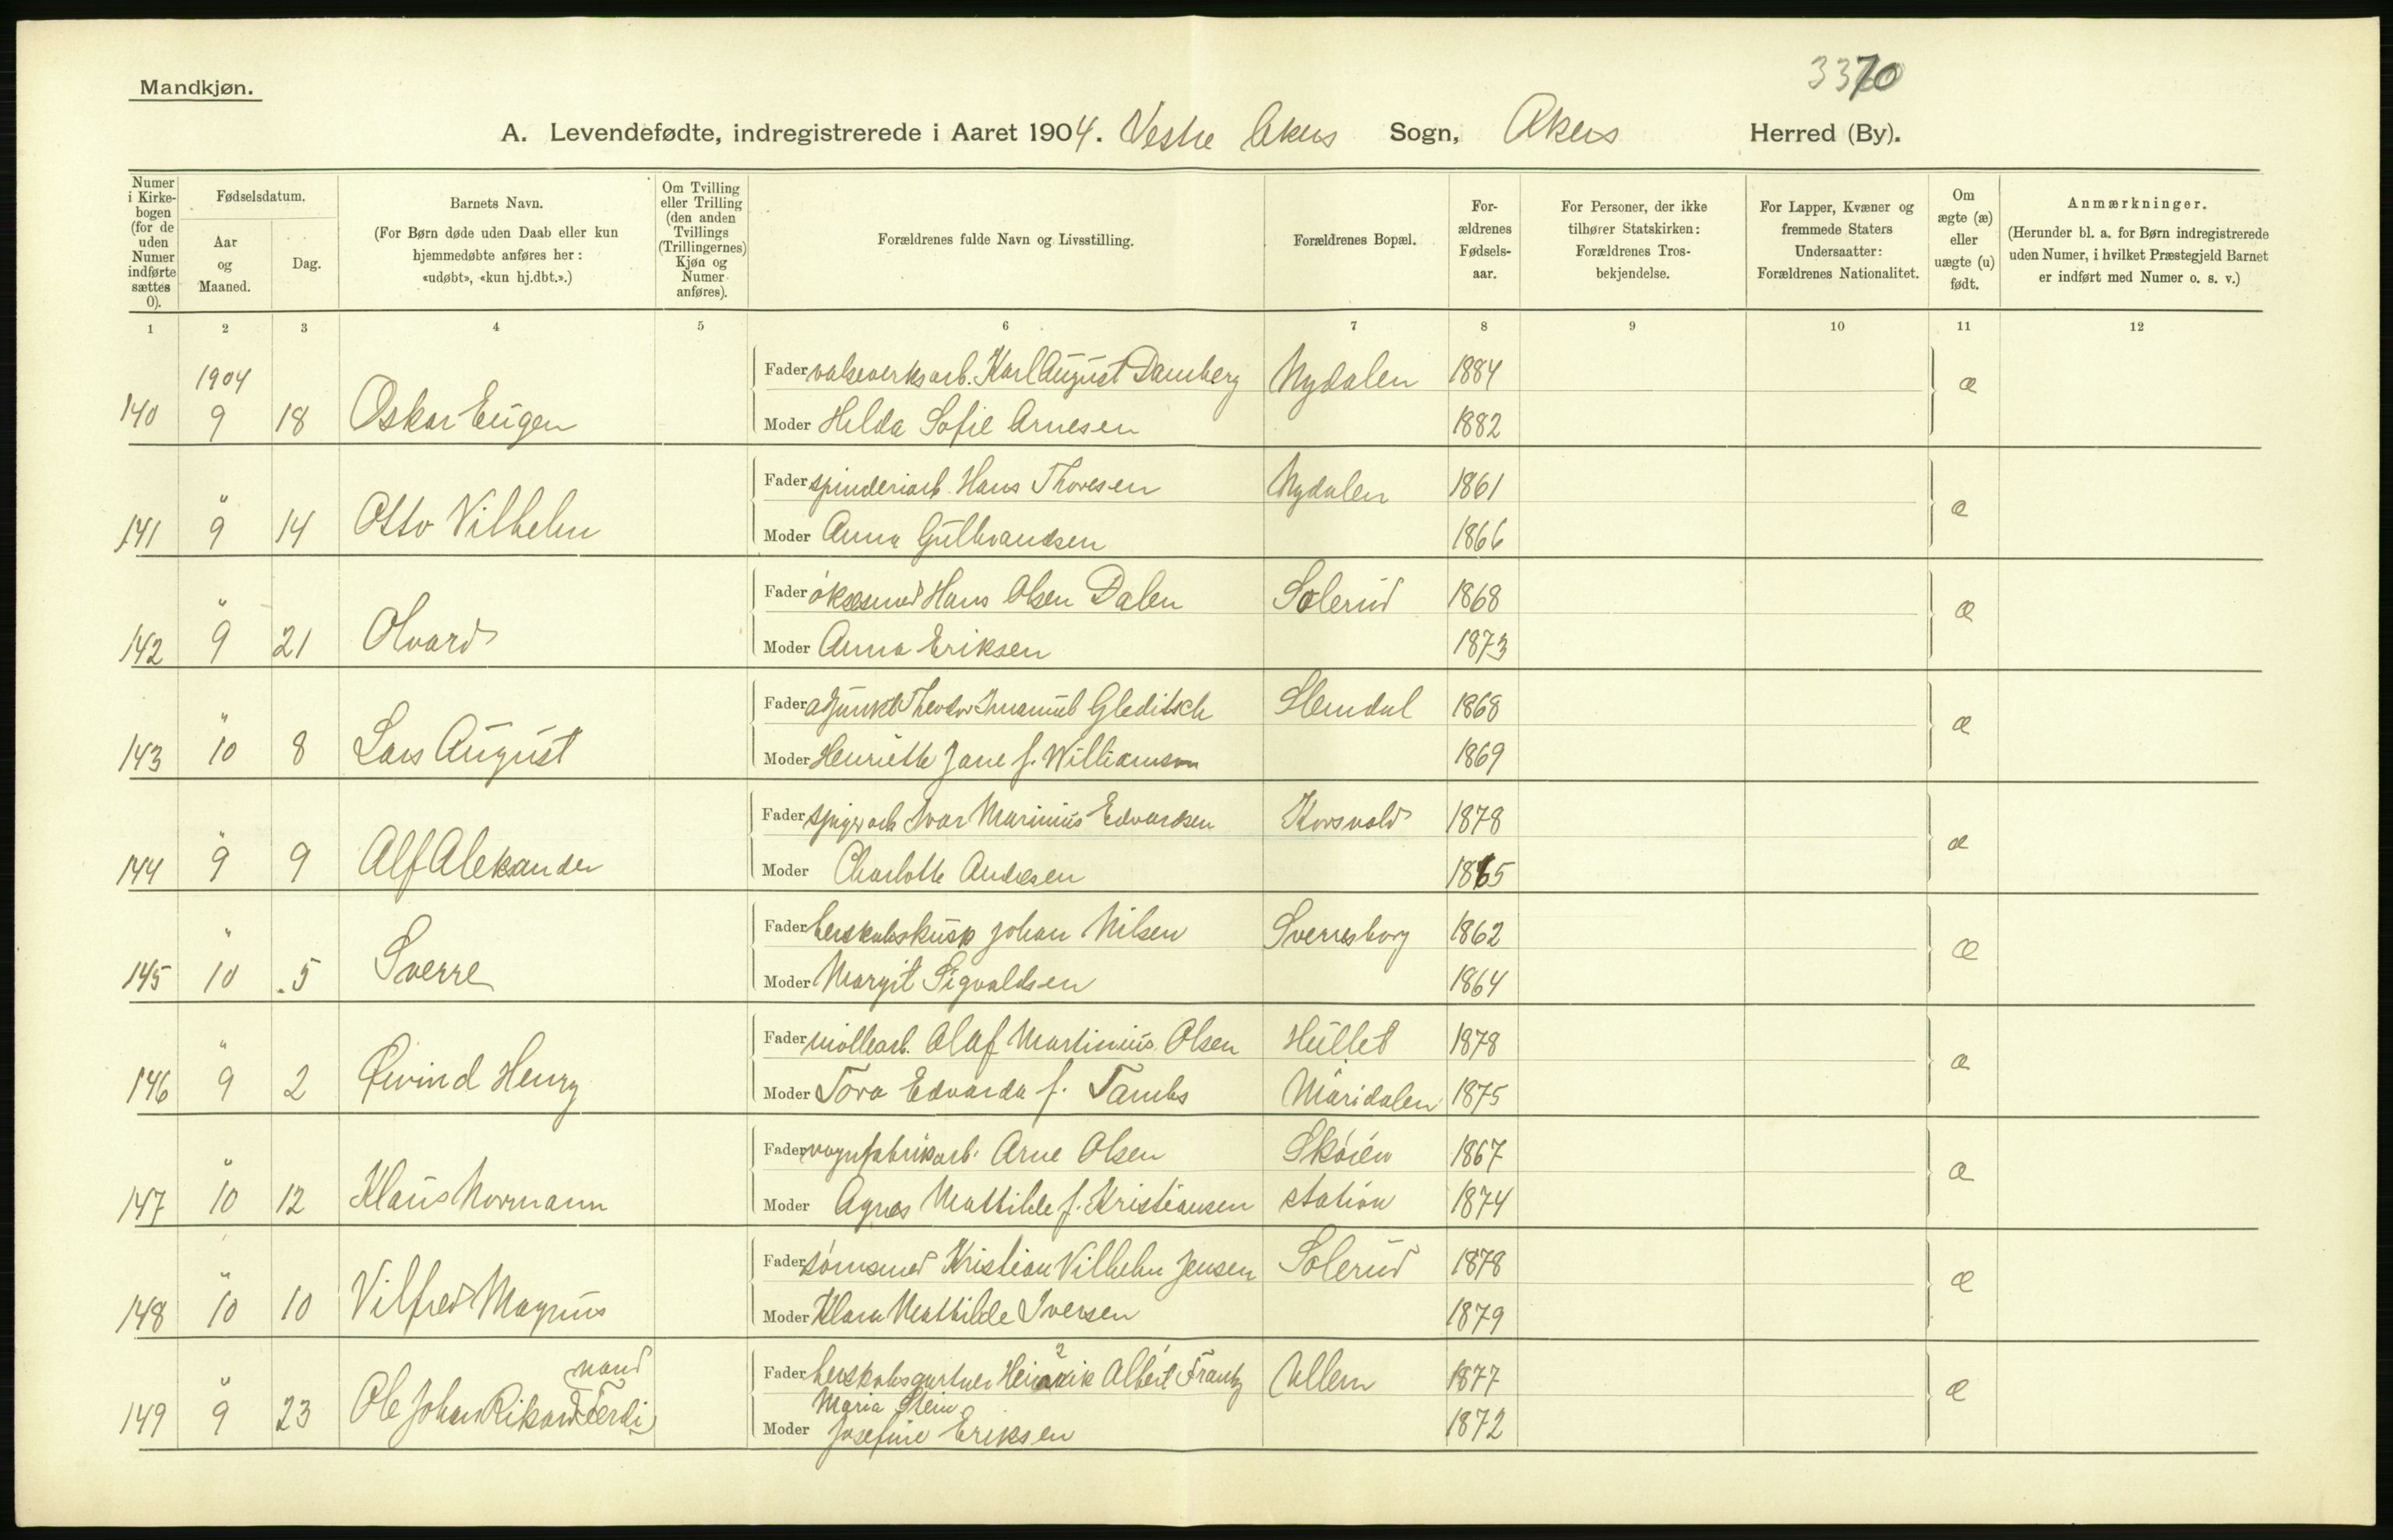 3370
Mandkjøn.
A. Levendefødte, indregistrerede i Aaret 1904. Vestre Akers Sogn, Akers Herred (By).
Numer i Kirkebogen (for de uden Numer indførte sættes 0).
Fødselsdatum.
Aar og Maaned.
Dag.
Barnets Navn.
(For Børn døde uden Daab eller kun hjemmedøbte anføres her: «udøbt», «kun hj.dbt.».)
Om Tvilling eller Trilling (den anden Tvillings (Trillingernes) Kjøn og Numer anføres).
Forældrenes fulde Navn og Livsstilling.
Forældrenes Bopæl.
Forældrenes Fødselsaar.
For Personer, der ikke tilhører Statskirken: Forældrenes Trosbekjendelse.
For Lapper, Kvæner og fremmede Staters Undersaatter: Forældrenes Nationalitet.
Om ægte (æ) eller uægte (u) født.
Anmærkninger.
(Herunder bl. a. for Børn indregistrerede uden Numer, i hvilket Præstegjeld Barnet er indført med Numer o. s. v.)
1 2 3 4 5 6 7 8 9 10 11 12
1904
Fader valseverksarb. Karl August Damberg Nydalen 1884 æ
140 9 18 Oskar Eugen
Moder Hilda Sofie Arnesen 1882
Fader spinderiarb. Hans Thoresen Nydalen 1861 æ
141 " 9 14 Otto Vilhelm
Moder Anna Gulbrandsen 1866
Fader øksesmed Hans Olsen Dalen Solerud 1868 æ
142 " 9 21 Olvard
Moder Anna Eriksen 1873
Fader adjunkt Theodor Imanuel Gleditsch Slemdal 1868 æ
143 " 10 8 Lars August
Moder Henriette Jane f. Williamson 1869
Fader spigerarb Ivar Marinius Edvardsen Korsvold 1878 æ
144 " 9 9 Alf Aleksander
Moder Charlotte Andresen 1865
Fader herskabskusk Johan Nilsen Sverresborg 1862 æ
145 " 10 5 Sverre
Moder Margit Sigvaldsen 1864
Fader møllearb. Olaf Martinius Olsen Hullet 1878 æ
146 " 9 2 Øivind Henry
Moder Tora Edvarda f. Tambs Maridalen 1875
Fader vognfabrikarb. Arne Olsen Skøien 1867 æ
147 " 10 12 Klaus Normann
Moder Agnes Mathilde f. Kristiansen station 1874
Fader sømsmed Kristian Vilhelm Jensen Solerud 1878 æ
148 " 10 10 Vilfred Magnus
Moder Klara Mathilde Iversen 1879
Fader herskabsgartner Heinrik Albert Frantz Ullern 1877 æ
Maria Stein
149 " 9 23 Ole Johan Rikard Ferdinand
Moder Josefine Eriksen 1872